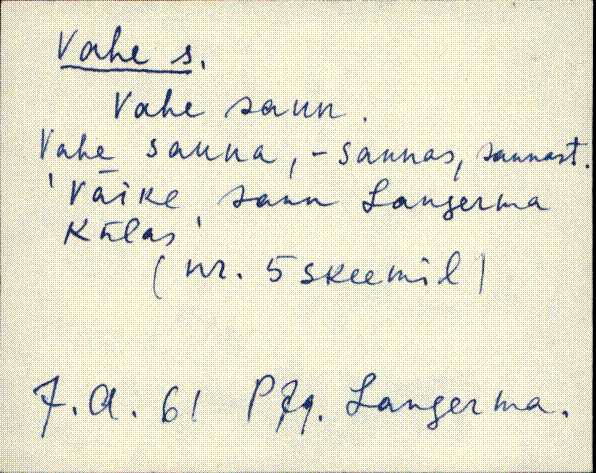 Vahe s.
Vahe saun.
Vahe sauna, -saunas, saunast.
'Väike saun Langerma
Külas'
(nr. 5 skeemil)
7.A. 61 Langerma.